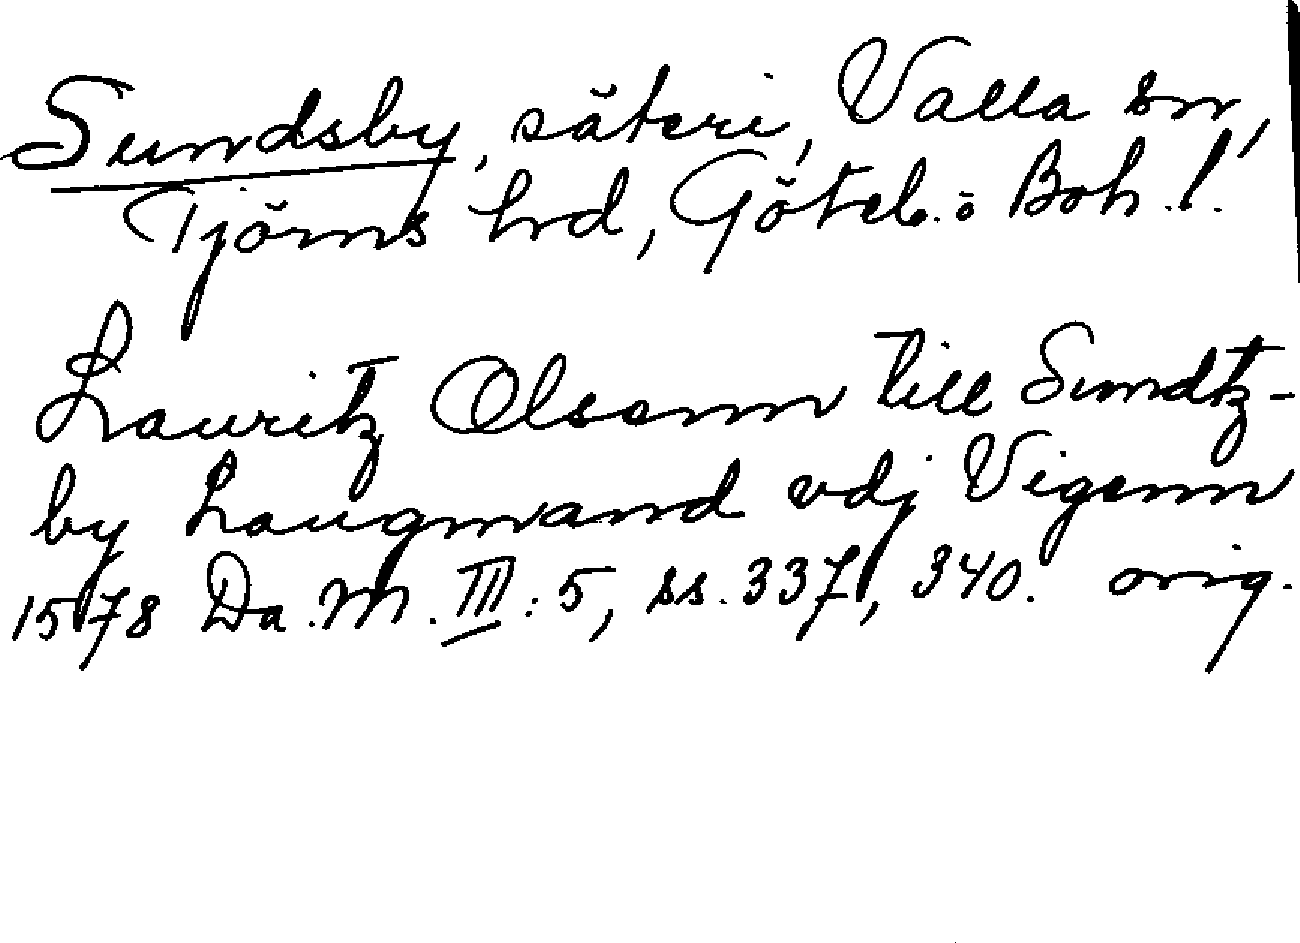 Sundsby, säteri, Valla sn,
Tjörns hrd, Göteb. o Boh. l.
Lauritz Olsenn till Sundtz-
by Laugmand vdj Vigenn
1578 Da. M. III: 5, ss. 337, 340. orig.